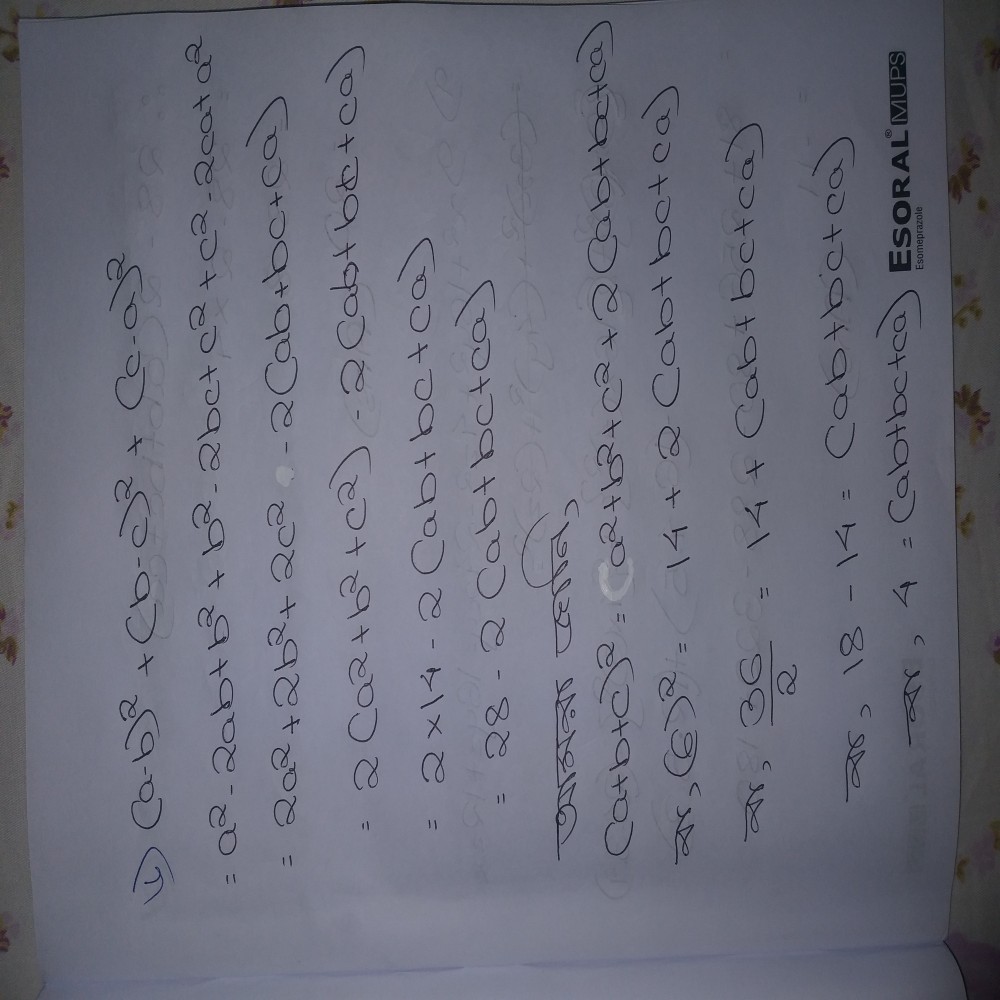 ৮) (a-b)² + (b-c)² + (c-a)²
= a² - 2ab + b² + b² - 2bc + c² + c² - 2ca + a²
= 2a² + 2b² + 2c² - 2(ab+bc+ca)
= 2(a²+b²+c²) - 2(ab+bc+ca)
= 2×14 - 2(ab+bc+ca)
= 28 - 2(ab+bc+ca)
আমরা জানি,
(a+b+c)² = a²+b²+c²+2(ab+bc+ca)
বা, (6)² = 14 + 2(ab+bc+ca)
বা, 36/2 = 14 + (ab+bc+ca)
বা, 18 - 14 = (ab+bc+ca)
বা, 4 = (ab+bc+ca)
ESORAL® MUPS
Esomeprazole